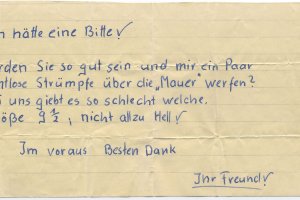 n hätte eine Bitte!
rden Sie so gut sein und mir ein Paar
htlose Strümpfe über die „Mauer" werfen?
i uns giebt es so schlecht welche.
öße 9 1/2, nicht allzu Hell!
Im voraus Besten Dank
Ihr Freund!